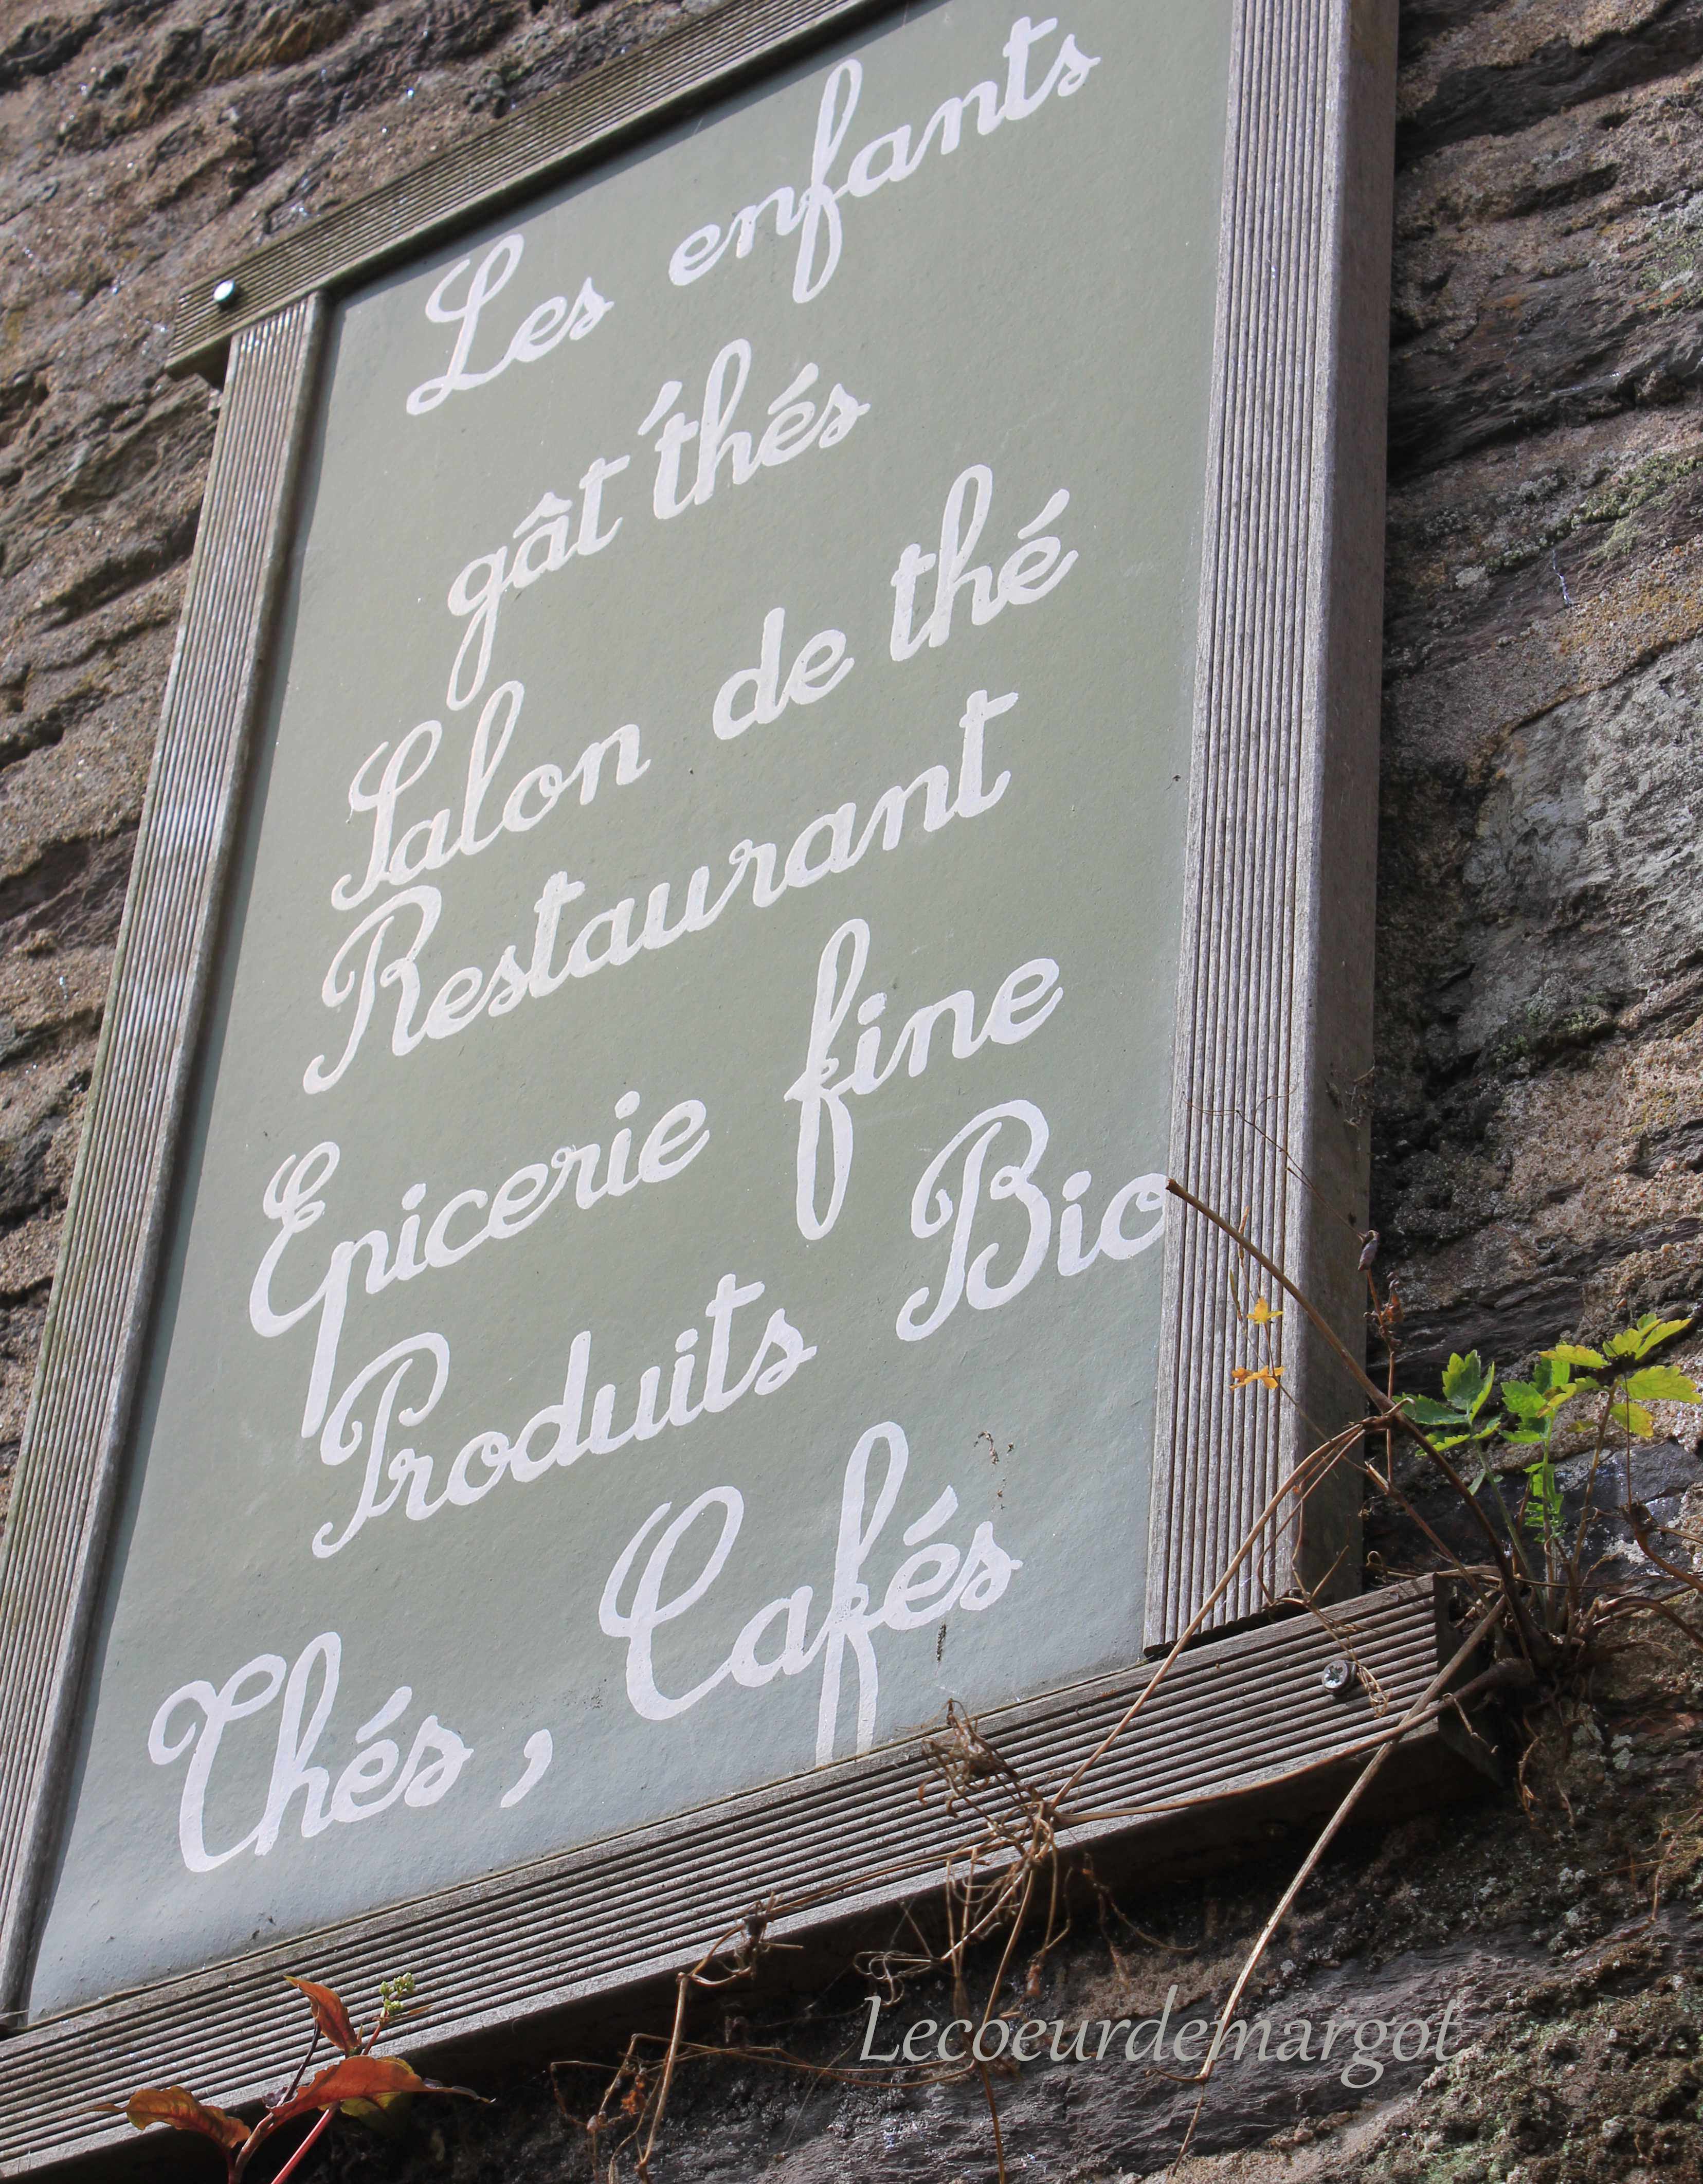 Les enfants
gât'thés
Salon de thé
Restaurant
Epicerie fine
Produits Bio
Thés, Cafés
Lecoeurdemargot